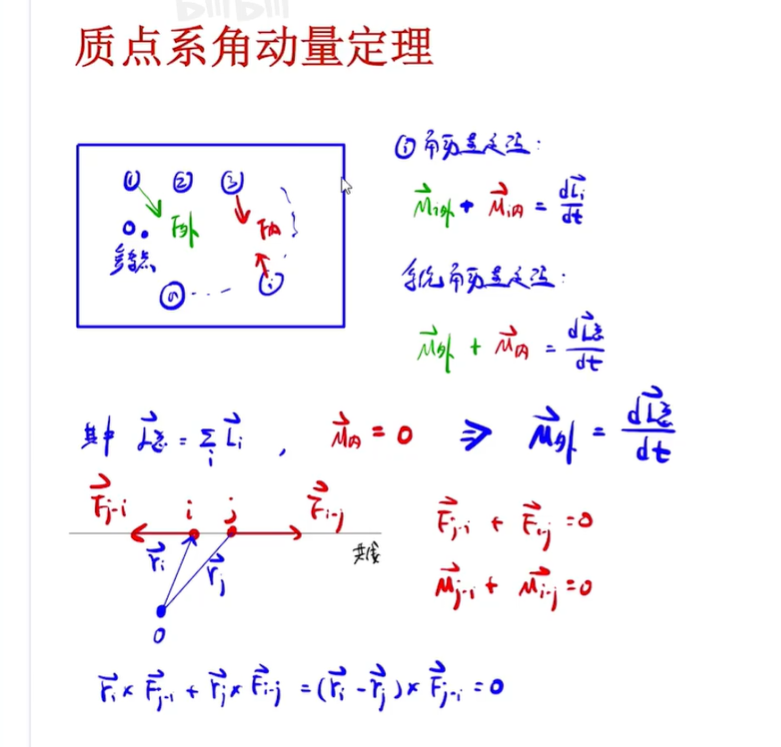 质点系角动量定理
① ② ③
O. F外 F内
参考点
ⓝ ... ⓘ
ⓘ 角动量定理:
M⃗i外 + M⃗i内 = dL⃗i/dt
系统角动量定理:
M⃗外 + M⃗内 = dL⃗总/dt
其中 L⃗总 = Σi L⃗i , M⃗内 = 0 ⇒ M⃗外 = dL⃗总/dt
F⃗j-i i j F⃗i-j
共线
r⃗i r⃗j
O
F⃗j-i + F⃗i-j = 0
M⃗j-i + M⃗i-j = 0
r⃗i × F⃗j-i + r⃗j × F⃗i-j = (r⃗i - r⃗j) × F⃗j-i = 0